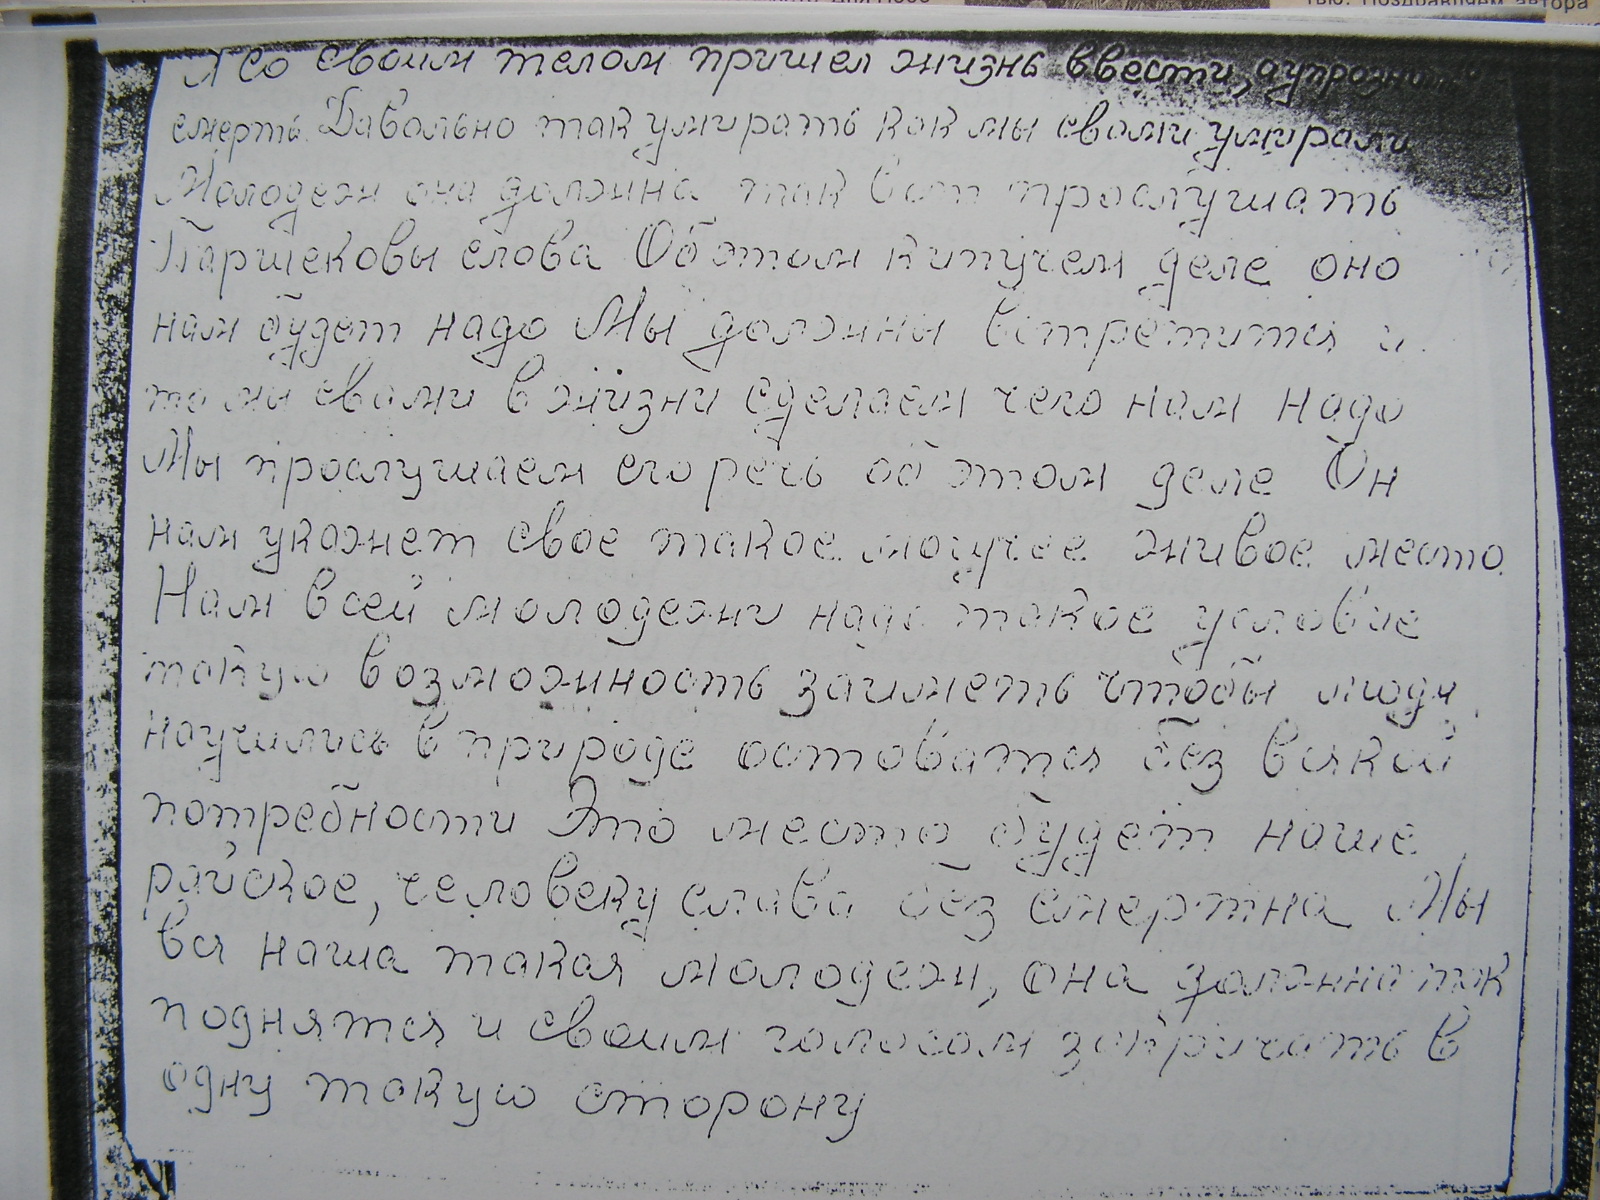 Я со своим телом пришел жизнь ввести, а
смерть. Давольно так умирать как мы свами умирали
Молодежи она должна так вот прослушать
Паршековы слова Об этом кипучем деле оно
нам будет надо Мы должны встретится и
то мы свами в жизни сделаем чего нам надо
Мы прослушаем его речь об этом деле Он
нам укажет свое такое могучее живое место.
Нам всей молодежи надо такое условие
такую возможность заиметь чтобы люди
научились в природе оставатся без всякой
потребности Это место будет наше
райское, человеку слава без смертна Мы
вся наша такая молодежи, она должна так
поднятся и своим голосом закричать в
одну такую сторону